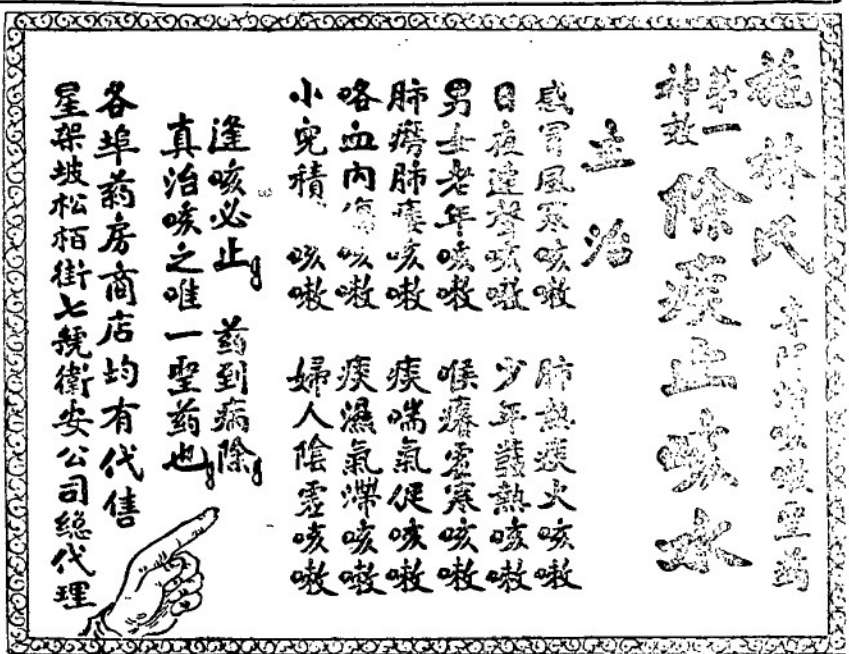 施林氏 專門治咳嗽聖药
第一神效 除痰止咳水
主治
感冒風寒咳嗽 肺熱痰火咳嗽
日夜連聲咳嗽 少年發熱咳嗽
男女老年咳嗽 喉癢虛寒咳嗽
肺癆肺痿咳嗽 痰喘氣促咳嗽
咯血內傷咳嗽 痰濕氣滯咳嗽
小兒積 咳嗽 婦人陰虛咳嗽
逢咳必止 药到病除
真治咳之唯一聖药也
各埠药房商店均有代售
星架坡松栢街七號衛安公司總代理